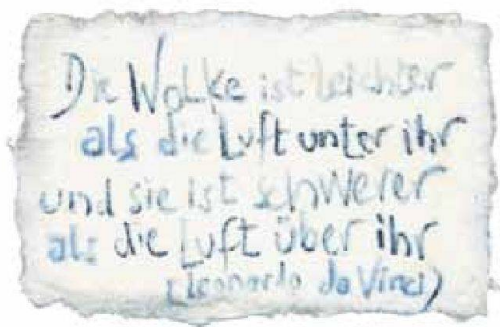 Die Wolke ist leichter
als die Luft unter ihr
und sie ist schwerer
als die Luft über ihr
(Leonardo da Vinci)